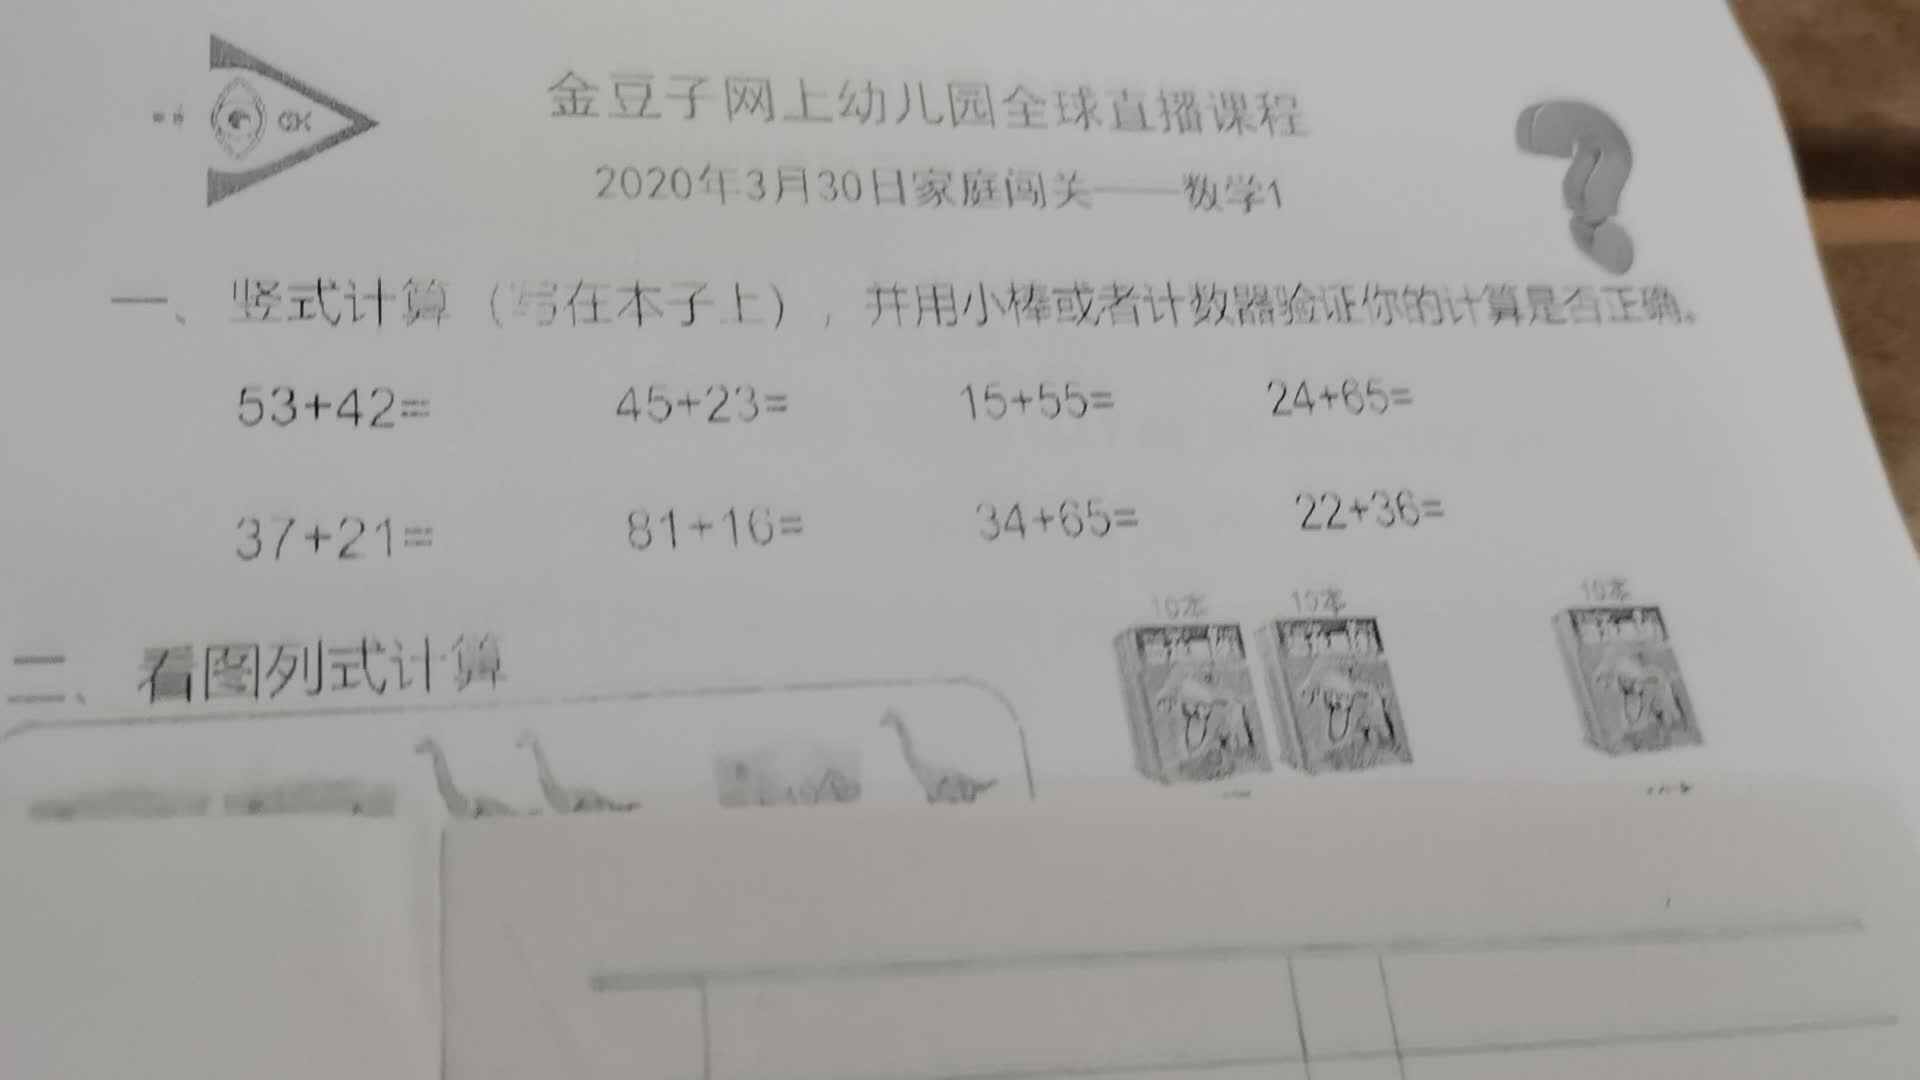 GK
金豆子网上幼儿园全球直播课程
2020年3月30日家庭闯关——数学1
一、竖式计算（写在本子上），并用小棒或者计数器验证你的计算是否正确。
53+42= 45+23= 15+55= 24+65=
37+21= 81+16= 34+65= 22+36=
10本 10本 10本
二、看图列式计算